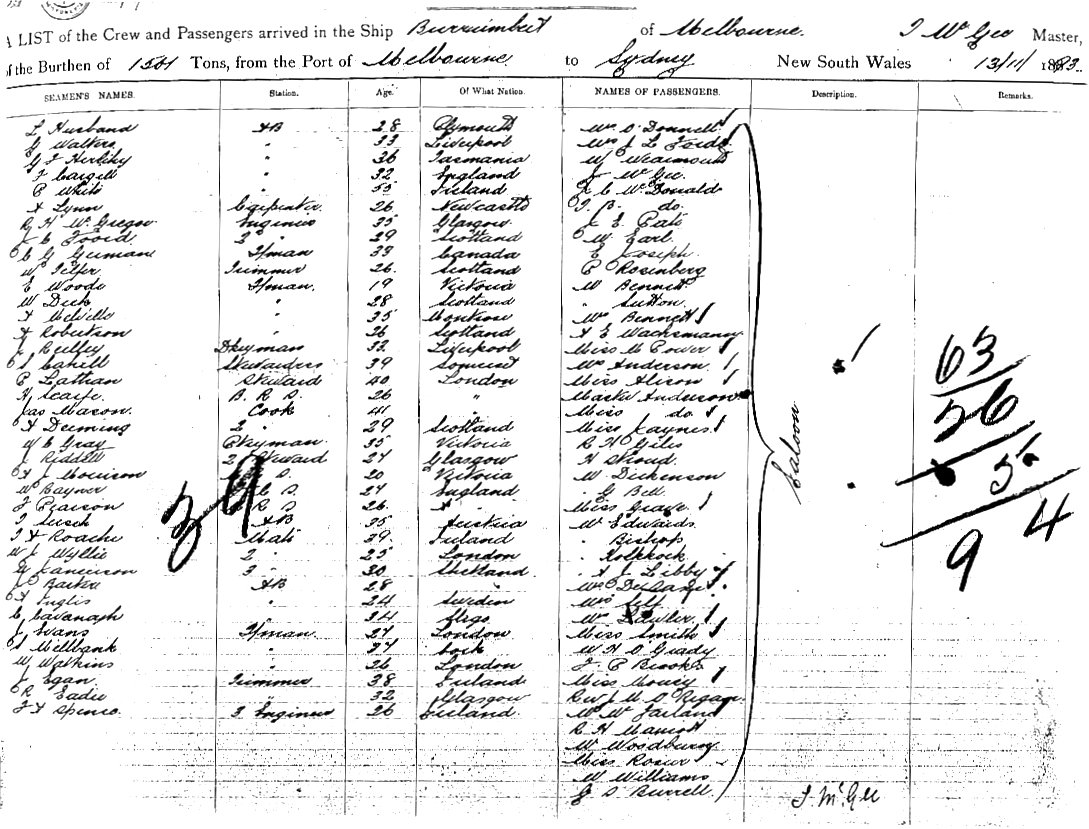 A LIST of the Crew and Passengers arrived in the Ship Burrumbeet of Melbourne. J McGee Master,
of the Burthen of Tons, from the Port of Melbourne to Sydney New South Wales 13/11/1883.
SEAMEN'S NAMES. Station. Age. Of What Nation. NAMES OF PASSENGERS. Description. Remarks.
L Husband AB 28 Plymouth Mrs O'Donnell
G Walters " 33 Liverpool Mrs J L
G J Herlihy " 36 Tasmania W Wearmouth
J Cargill " 32 England J McGee
P White " 55 Ireland J C McDonald
A Lynn Carpenter 26 Newcastle J B do
R H McGregor Engineer 35 Glasgow J E Pate
J C 2 " 29 Scotland W Earl
C G German F/man 33 Canada E Joseph
W Telfer Trimmer 26 Scotland P Rosenberg
E Woods F/man 19 Victoria W Bennett
W Dick " 28 Scotland " Sutton
A Melville " 35 Montrose Mrs Bennett
A Robertson " 26 Scotland A E Wachsmann
Reilley Dkeyman 33 Liverpool Miss M Power
S Cahill Stewardess 39 Somerset Mrs Anderson
P Lathan Steward 40 London Miss Alison
H Scaife B. R. S 26 " Master Anderson
Jas Mason Cook 41 " Miss do
A Deeming 2 " 29 Scotland Miss Jaynes
W C Gray Pkeyman 35 Victoria R H Giles
J Riddell 2 Steward 24 Glasgow H Stroud
A J Morrison S. 20 Victoria W Dickenson
W Rayner S 24 England G Bell
J Pearson R S 26 " Miss Grave
J AB 35 Austria W Edwards
J A Roache Mate 39 Ireland " Bishop
W J Wyllie 2 " 25 London "
W Jamieson 3 " 30 Shetland A J Libby
J Barker AB 28 " Mrs Delany
A Inglis " 24 Sweden Mrs Self
C Cavanagh " 34 Sligo Mrs Lawler
J Evans F/man 24 London Miss Smith
S Millbank " 24 Cork W H O'Grady
W Watkins " 26 London J P Brooks
J Egan Trimmer 38 Ireland Miss Moury
R Eadie " 32 Glasgow Rev J M O'Regan
J A Spence 3 Engineer 26 Ireland W McFarland
R H Marriott
W Woodburry
Miss Rosur
W Williams
G S Burrell
Saloon
39
63
26
5
9 4
J McGee